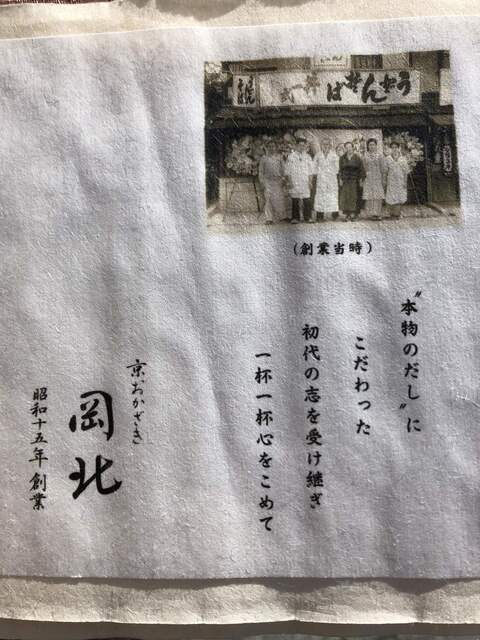 うどんそば
(創業当時)
〝本物のだし〟に
こだわった
初代の志を受け継ぎ
一杯一杯心をこめて
京おかざき
岡北
昭和十五年創業